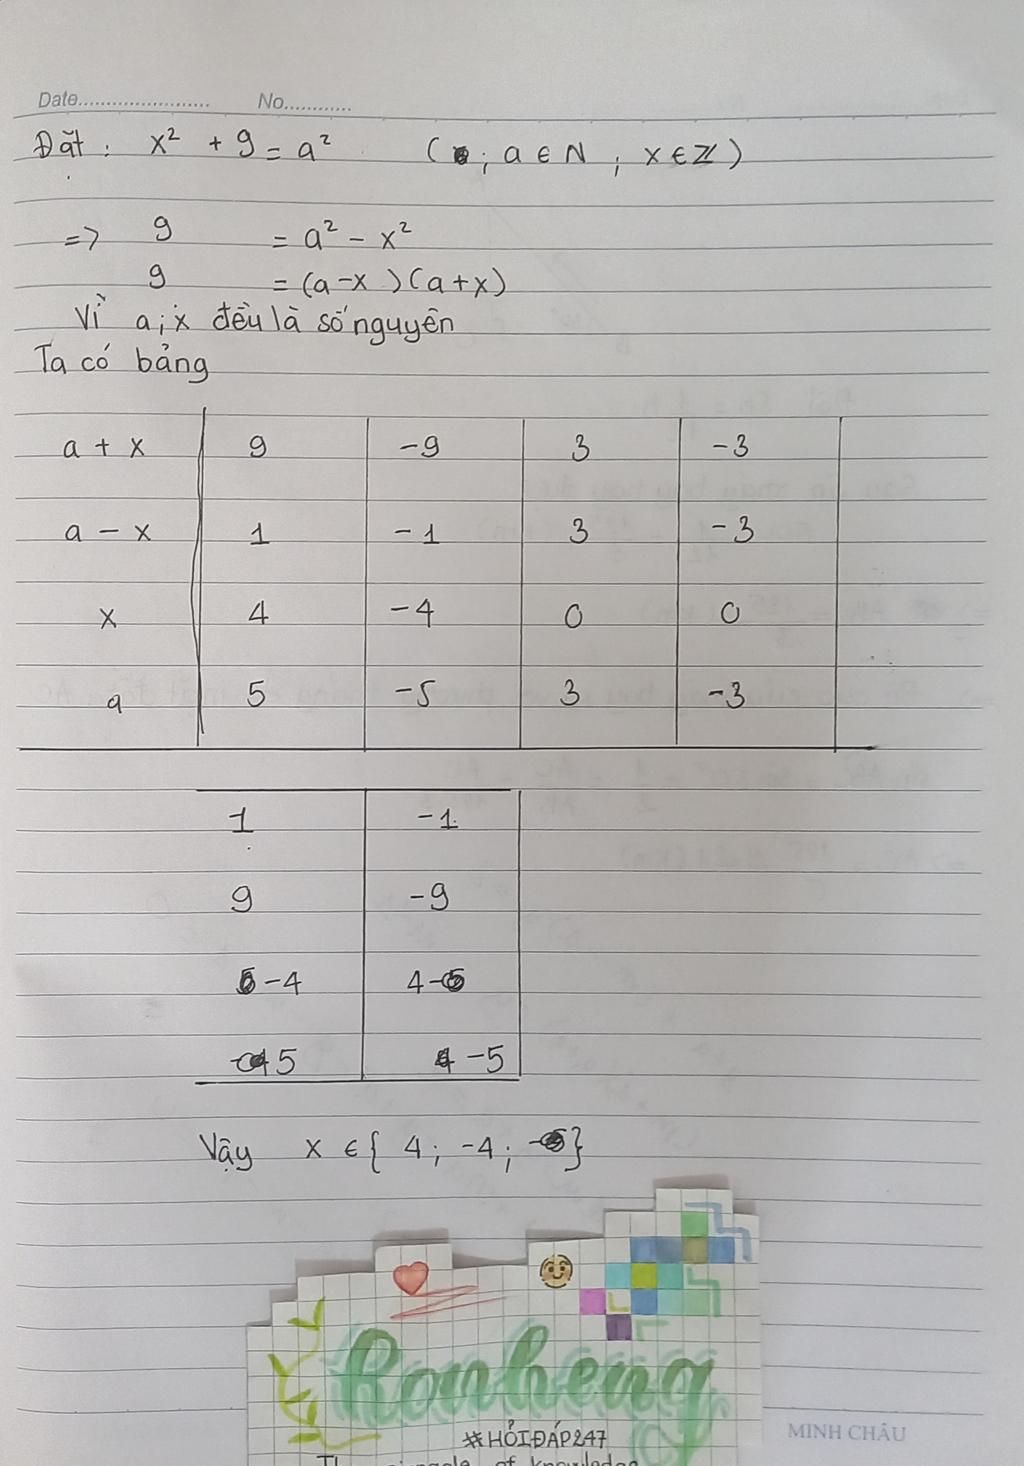 Date....................... No............
Đặt : x² + 9 = a² ( ; a ∈ N ; x ∈ Z )
=> 9 = a² - x²
9 = (a-x)(a+x)
Vì a; x đều là số nguyên
Ta có bảng
a + x 9 -9 3 -3
a - x 1 -1 3 -3
x 4 -4 0 0
a 5 -5 3 -3
1 -1
9 -9
-4 4
5 -5
Vậy x ∈ { 4; -4; }
#HỎIĐÁP247
of knowledge
MINH CHÂU